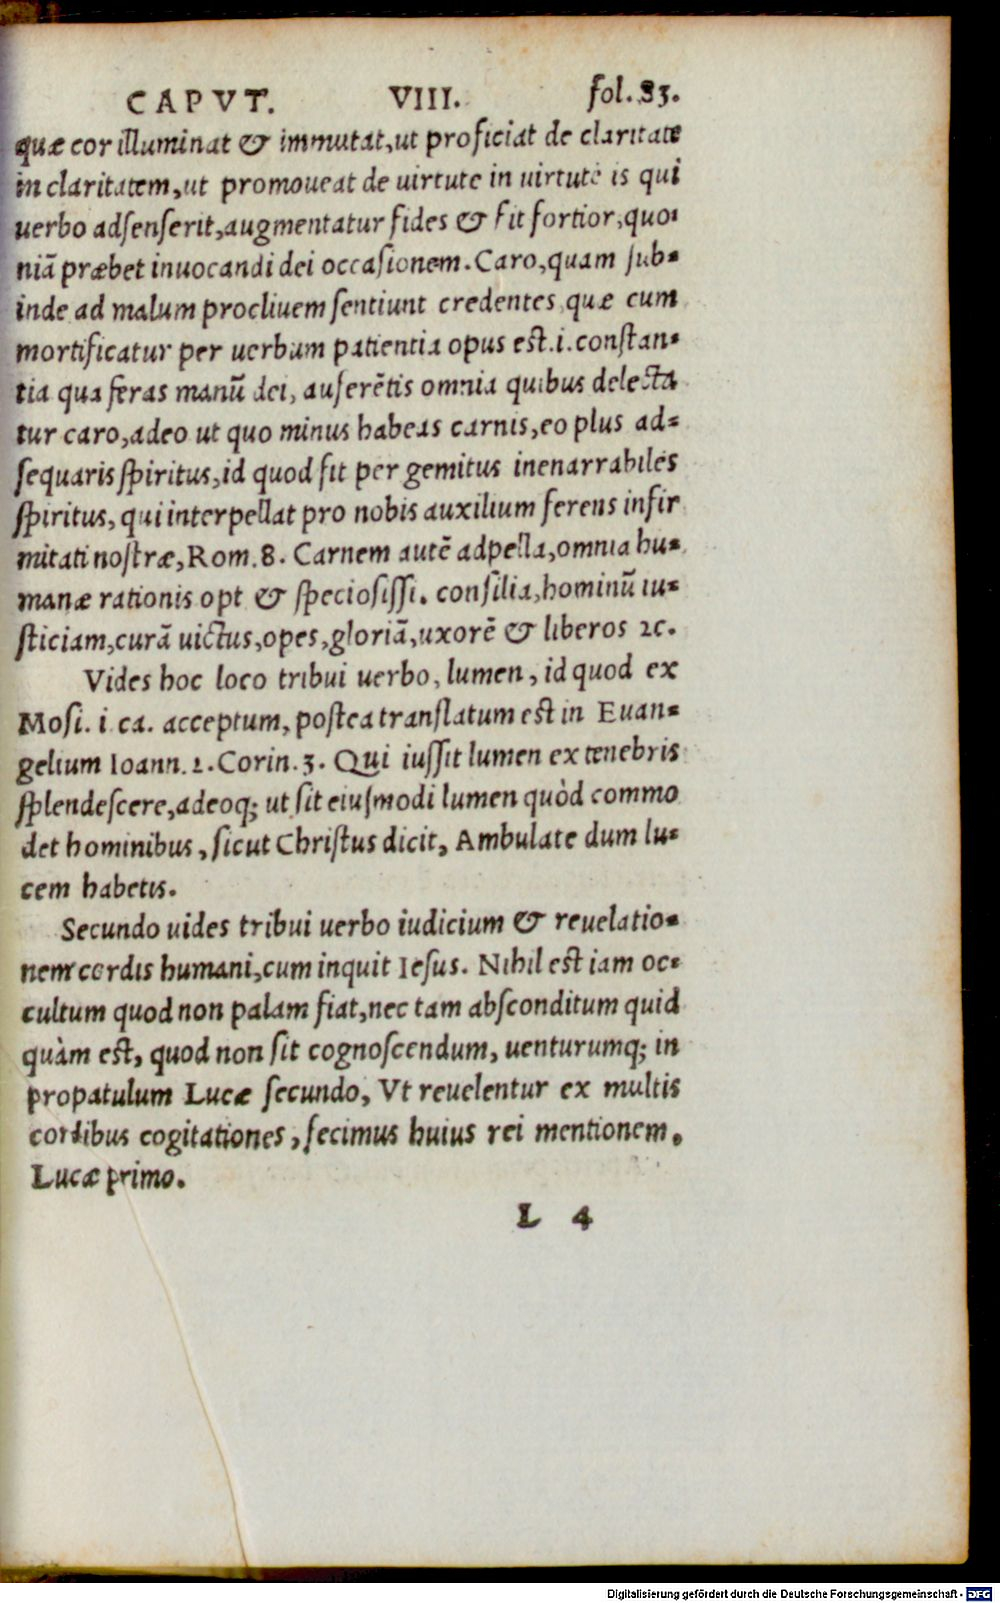 CAPVT. VIII. fol. 83.
quæ cor illuminat & immutat, ut proficiat de claritate
in claritatem, ut promoueat de uirtute in uirtutē is qui
uerbo adſenſerit, augmentatur fides & fit fortior, quo⸗
niã præbet inuocandi dei occaſionem. Caro, quam ſub⸗
inde ad malum procliuem ſentiunt credentes, quæ cum
mortificatur per uerbum patientia opus eſt .i. conſtan⸗
tia qua feras manũ dei, auferẽtis omnia quibus delecta
tur caro, adeo ut quo minus habeas carnis, eo plus ad⸗
ſequaris ſpiritus, id quod fit per gemitus inenarrabiles
ſpiritus, qui interpellat pro nobis auxilium ferens infir
mitati noſtræ, Rom. 8. Carnem autẽ adpella, omnia hu⸗
manæ rationis opt & ſpecioſiſſi. conſilia, hominũ iu⸗
ſticiam, curã uictus, opes, gloriã, uxorẽ & liberos ⁊c.
Vides hoc loco tribui uerbo, lumen, id quod ex
Moſi. i. ca. acceptum, poſtea translatum eſt in Euan⸗
gelium Ioann. 2. Corin. 3. Qui iuſſit lumen ex tenebris
ſplendeſcere, adeoq; ut ſit eiuſmodi lumen quòd commo
det hominibus, ſicut Chriſtus dicit, Ambulate dum lu⸗
cem habetis.
Secundo uides tribui uerbo iudicium & reuelatio⸗
nem cordis humani, cum inquit Ieſus. Nihil eſt iam oc⸗
cultum quod non palam fiat, nec tam abſconditum quid
quàm eſt, quod non ſit cognoſcendum, uenturumq; in
propatulum Lucæ ſecundo, Vt reuelentur ex multis
cordibus cogitationes, fecimus huius rei mentionem.
Lucæ primo.
L 4
Digitalisierung gefördert durch die Deutsche Forschungsgemeinschaft - DFG